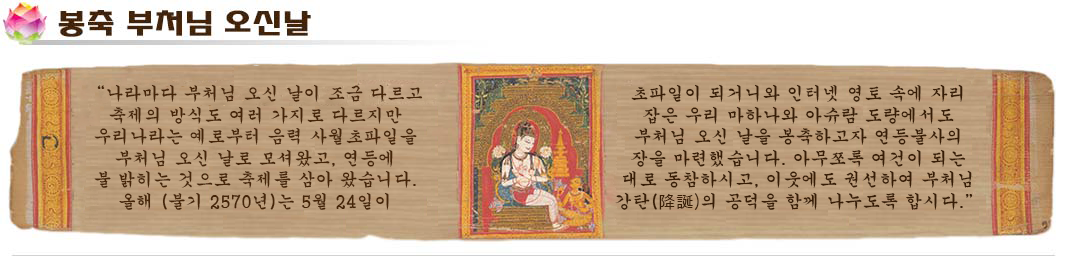 봉축 부처님 오신날
“나라마다 부처님 오신 날이 조금 다르고
축제의 방식도 여러 가지로 다르지만
우리나라는 예로부터 음력 사월초파일을
부처님 오신 날로 모셔왔고, 연등에
불 밝히는 것으로 축제를 삼아 왔습니다.
올해 (불기 2570년)는 5월 24일이
초파일이 되거니와 인터넷 영토 속에 자리
잡은 우리 마하나와 아슈람 도량에서도
부처님 오신 날을 봉축하고자 연등불사의
장을 마련했습니다. 아무쪼록 여건이 되는
대로 동참하시고, 이웃에도 권선하여 부처님
강탄(降誕)의 공덕을 함께 나누도록 합시다.”